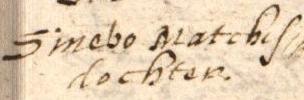 Sinebo Matchis
dochter.